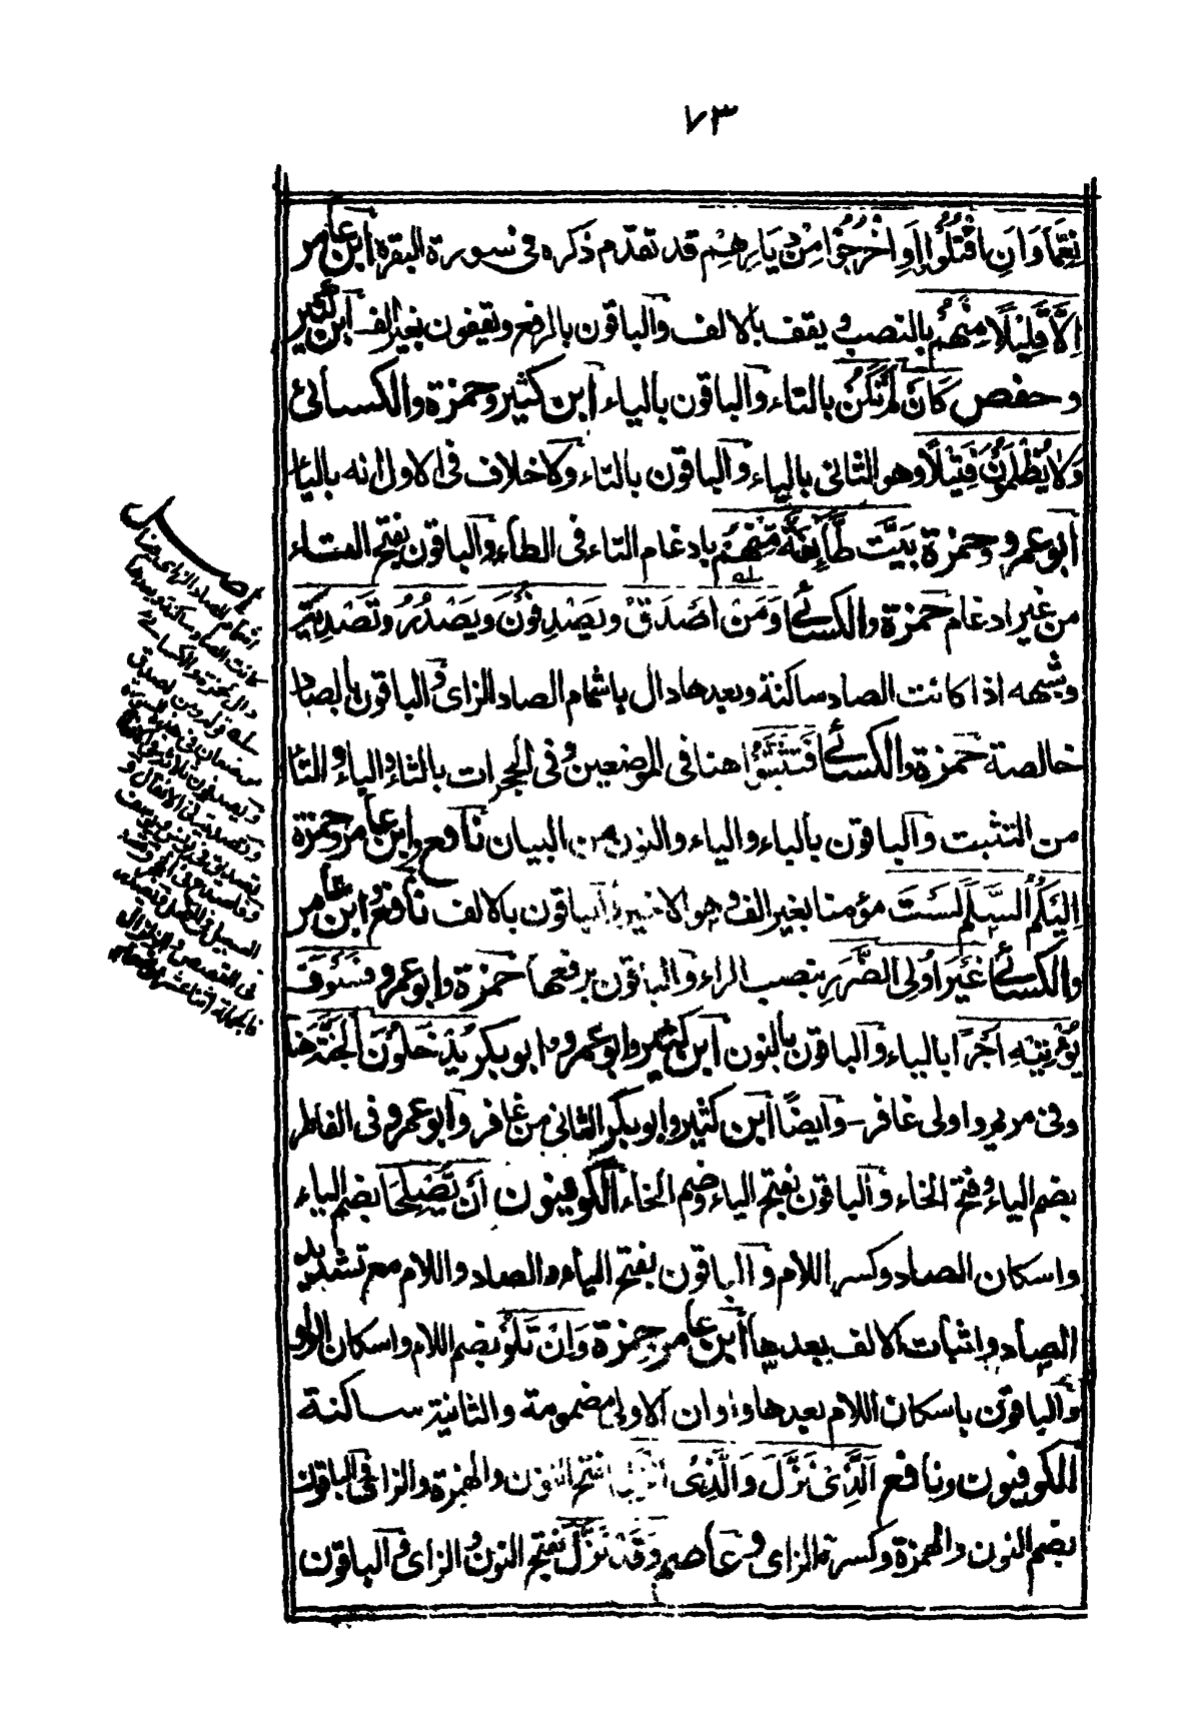 ٧٣
نِعِمَّا وَانِ اقْتُلُوا اَوِ اخْرُجُوْا مِنْ دِيَارِهِمْ قد تقدّم ذكره فى سورة البقرة ابن عامر
اِلَّا قَلِيْلًا مِنْهُمْ بالنصب و يقف بالالف والباقون بالرفع ويقفون بغير الف ابن كثير
وحفص كَانَ لَمْ تَكُنْ بالتاء والباقون بالياء ابن كثير وحمزة والكسائى
وَلَا يُظْلَمُوْنَ فَتِيْلًا وهو الثانى بالياء والباقون بالتاء ولا خلاف فى الاول انه باليا
ابو عمرو وحمزة بَيَّتَ طَّآئِفَةٌ مِّنْهُمْ بادغام التاء فى الطاء والباقون بفتح التاء
من غير ادغام حمزة والكسائى وَمَنْ اَصْدَقُ و يَصْدِفُوْنَ و يَصْدُرُ و تَصْدِيَةً
وشبهه اذا كانت الصاد ساكنة وبعدها دال باشمام الصاد الزاى والباقون بالصاد
خالصة حمزة والكسائى فَتَثَبَّتُوْا هنا فى الموضعين وفى الحجرات بالثاء والباء والتا
من التثبت والباقون بالباء والياء والنون من البيان نافع وابن عامر وحمزة
اِلَيْكُمُ السَّلَمَ لَسْتَ مؤمنا بغير الف وهو الاخير والباقون بالالف نافع وابن عامر
والكسائى غَيْرَ اُولِى الضَّرَرِ بنصب الراء والباقون برفعها حمزة وابو عمرو فَسَوْفَ
يُؤْتِيْهِ اَجْرًا بالياء والباقون بالنون ابن كثير وابو عمرو وابو بكر يُدْخَلُوْنَ الْجَنَّةَ هنا
وفى مريم واولى غافر وايضًا ابن كثير وابو بكر الثانى من غافر وابو عمرو فى الفاطر
بضم الياء وفتح الخاء والباقون بفتح الياء وضم الخاء الكوفيون اَنْ يُّصْلِحَا بضم الياء
واسكان الصاد وكسر اللام والباقون بفتح الياء والصاد واللام مع تشديد
الصاد واثبات الالف بعدها ابن عامر وحمزة وَاِنْ تَلُوْ بضم اللام واسكان الواو
والباقون باسكان اللام بعدها واوان الاولى مضمومة والثانية ساكنة
الكوفيون ونافع الَّذِىْ نَزَّلَ وَالَّذِىْ اَنْزَلَ بفتح النون والهمزة والزاى والباقون
بضم النون والهمزة وكسرة الزاى وعاصم وَقَدْ نَزَّلَ بفتح النون والزاى والباقون
اشمام الصاد الزاى
كانت الصاد ساكنة وبعدها
دال حمزة والكسائى
فى القصص والزلزال